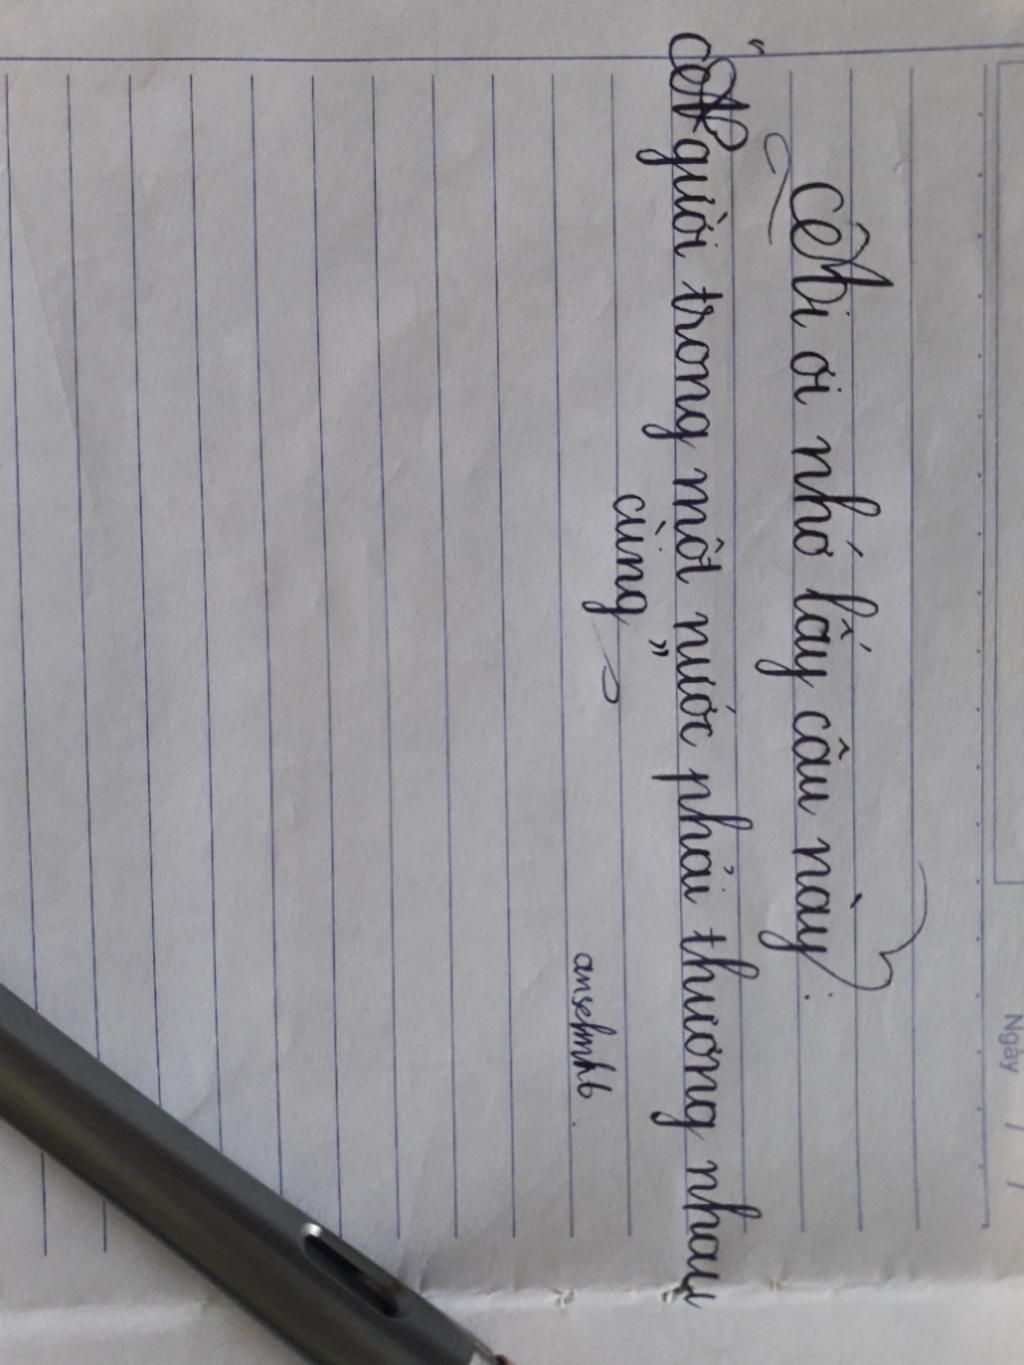 Ngày / /
Ai ơi nhớ lấy câu này:
"Người trong một nước phải thương nhau
cùng"
anselmhb.